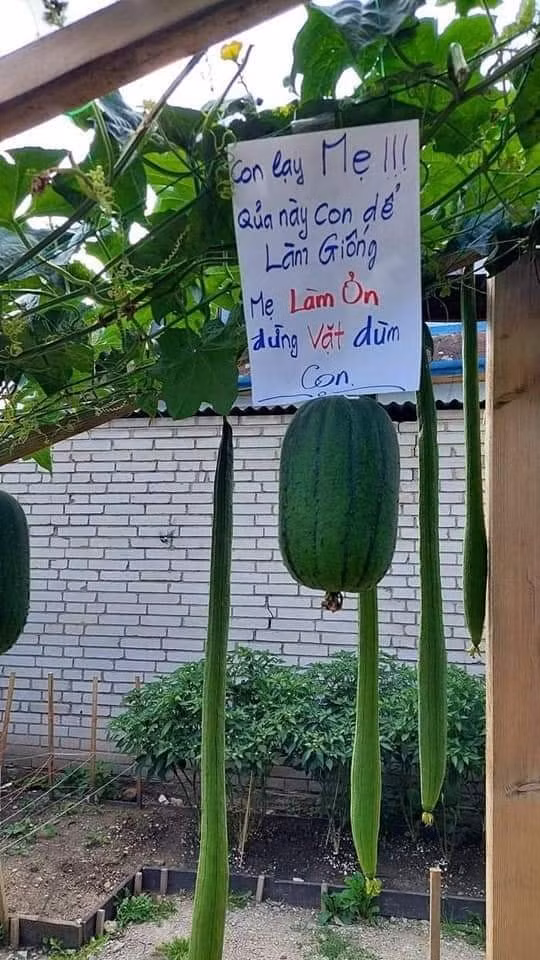 Con lạy Mẹ !!!
Qủa này Con để
Làm Giống
Mẹ Làm Ỏn
đừng Vặt dùm
Con.